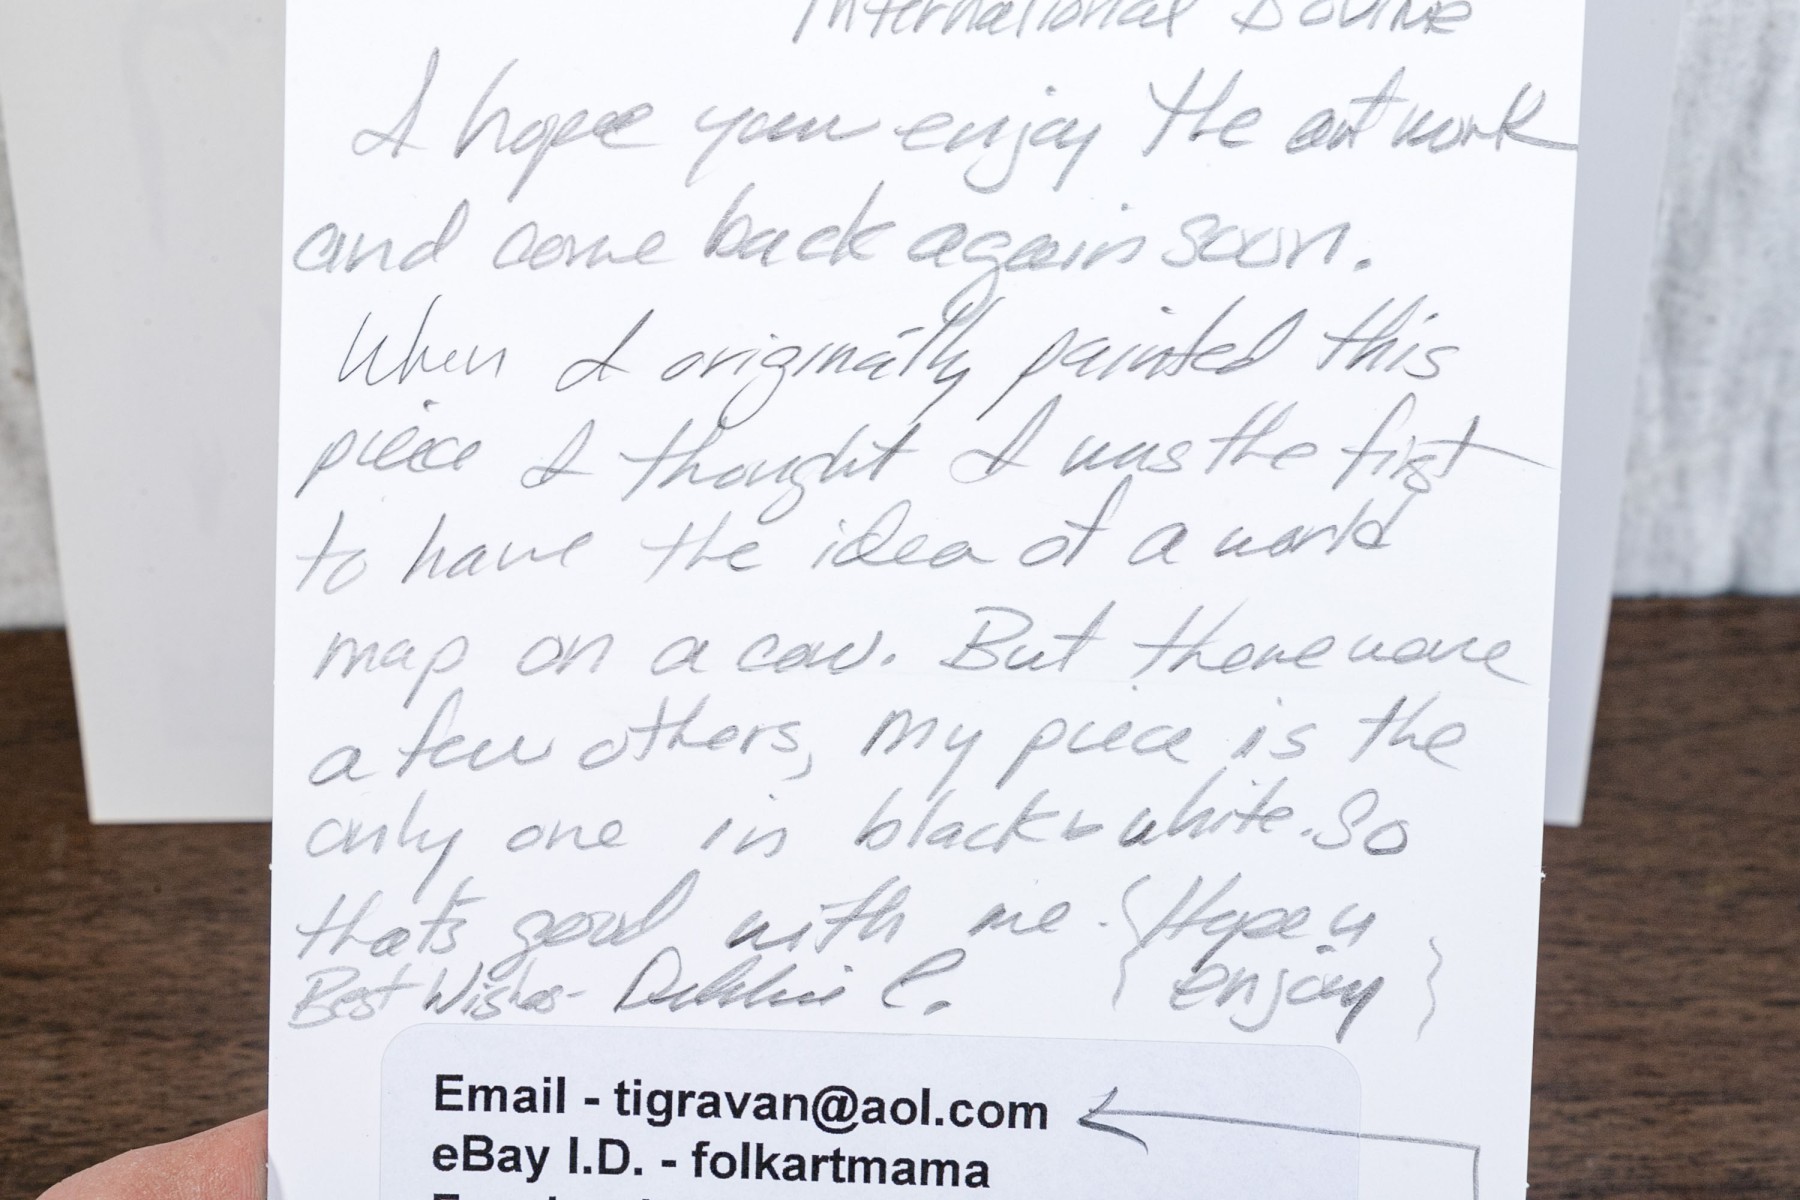 International Bovine
I hope you enjoy the artwork
and come back again soon.
When I originally painted this
piece I thought I was the first
to have the idea of a world
map on a cow. But there were
a few others, My piece is the
only one in black & white. So
that's good with me. {Hope u
Best Wishes - Debbie C. enjoy}
Email - tigravan@aol.com
eBay I.D. - folkartmama